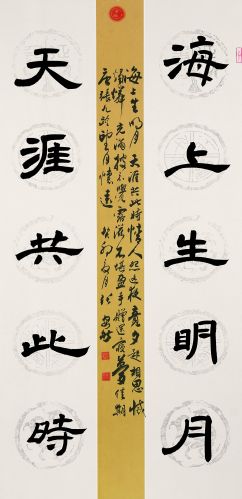 海上生明月
天涯共此時
海上生明月 天涯共此時 情人怨遥夜 竟夕起相思 滅
燭憐光滿 披衣覺露滋 不堪盈手贈 還寢夢佳期
唐張九齡望月懷遠